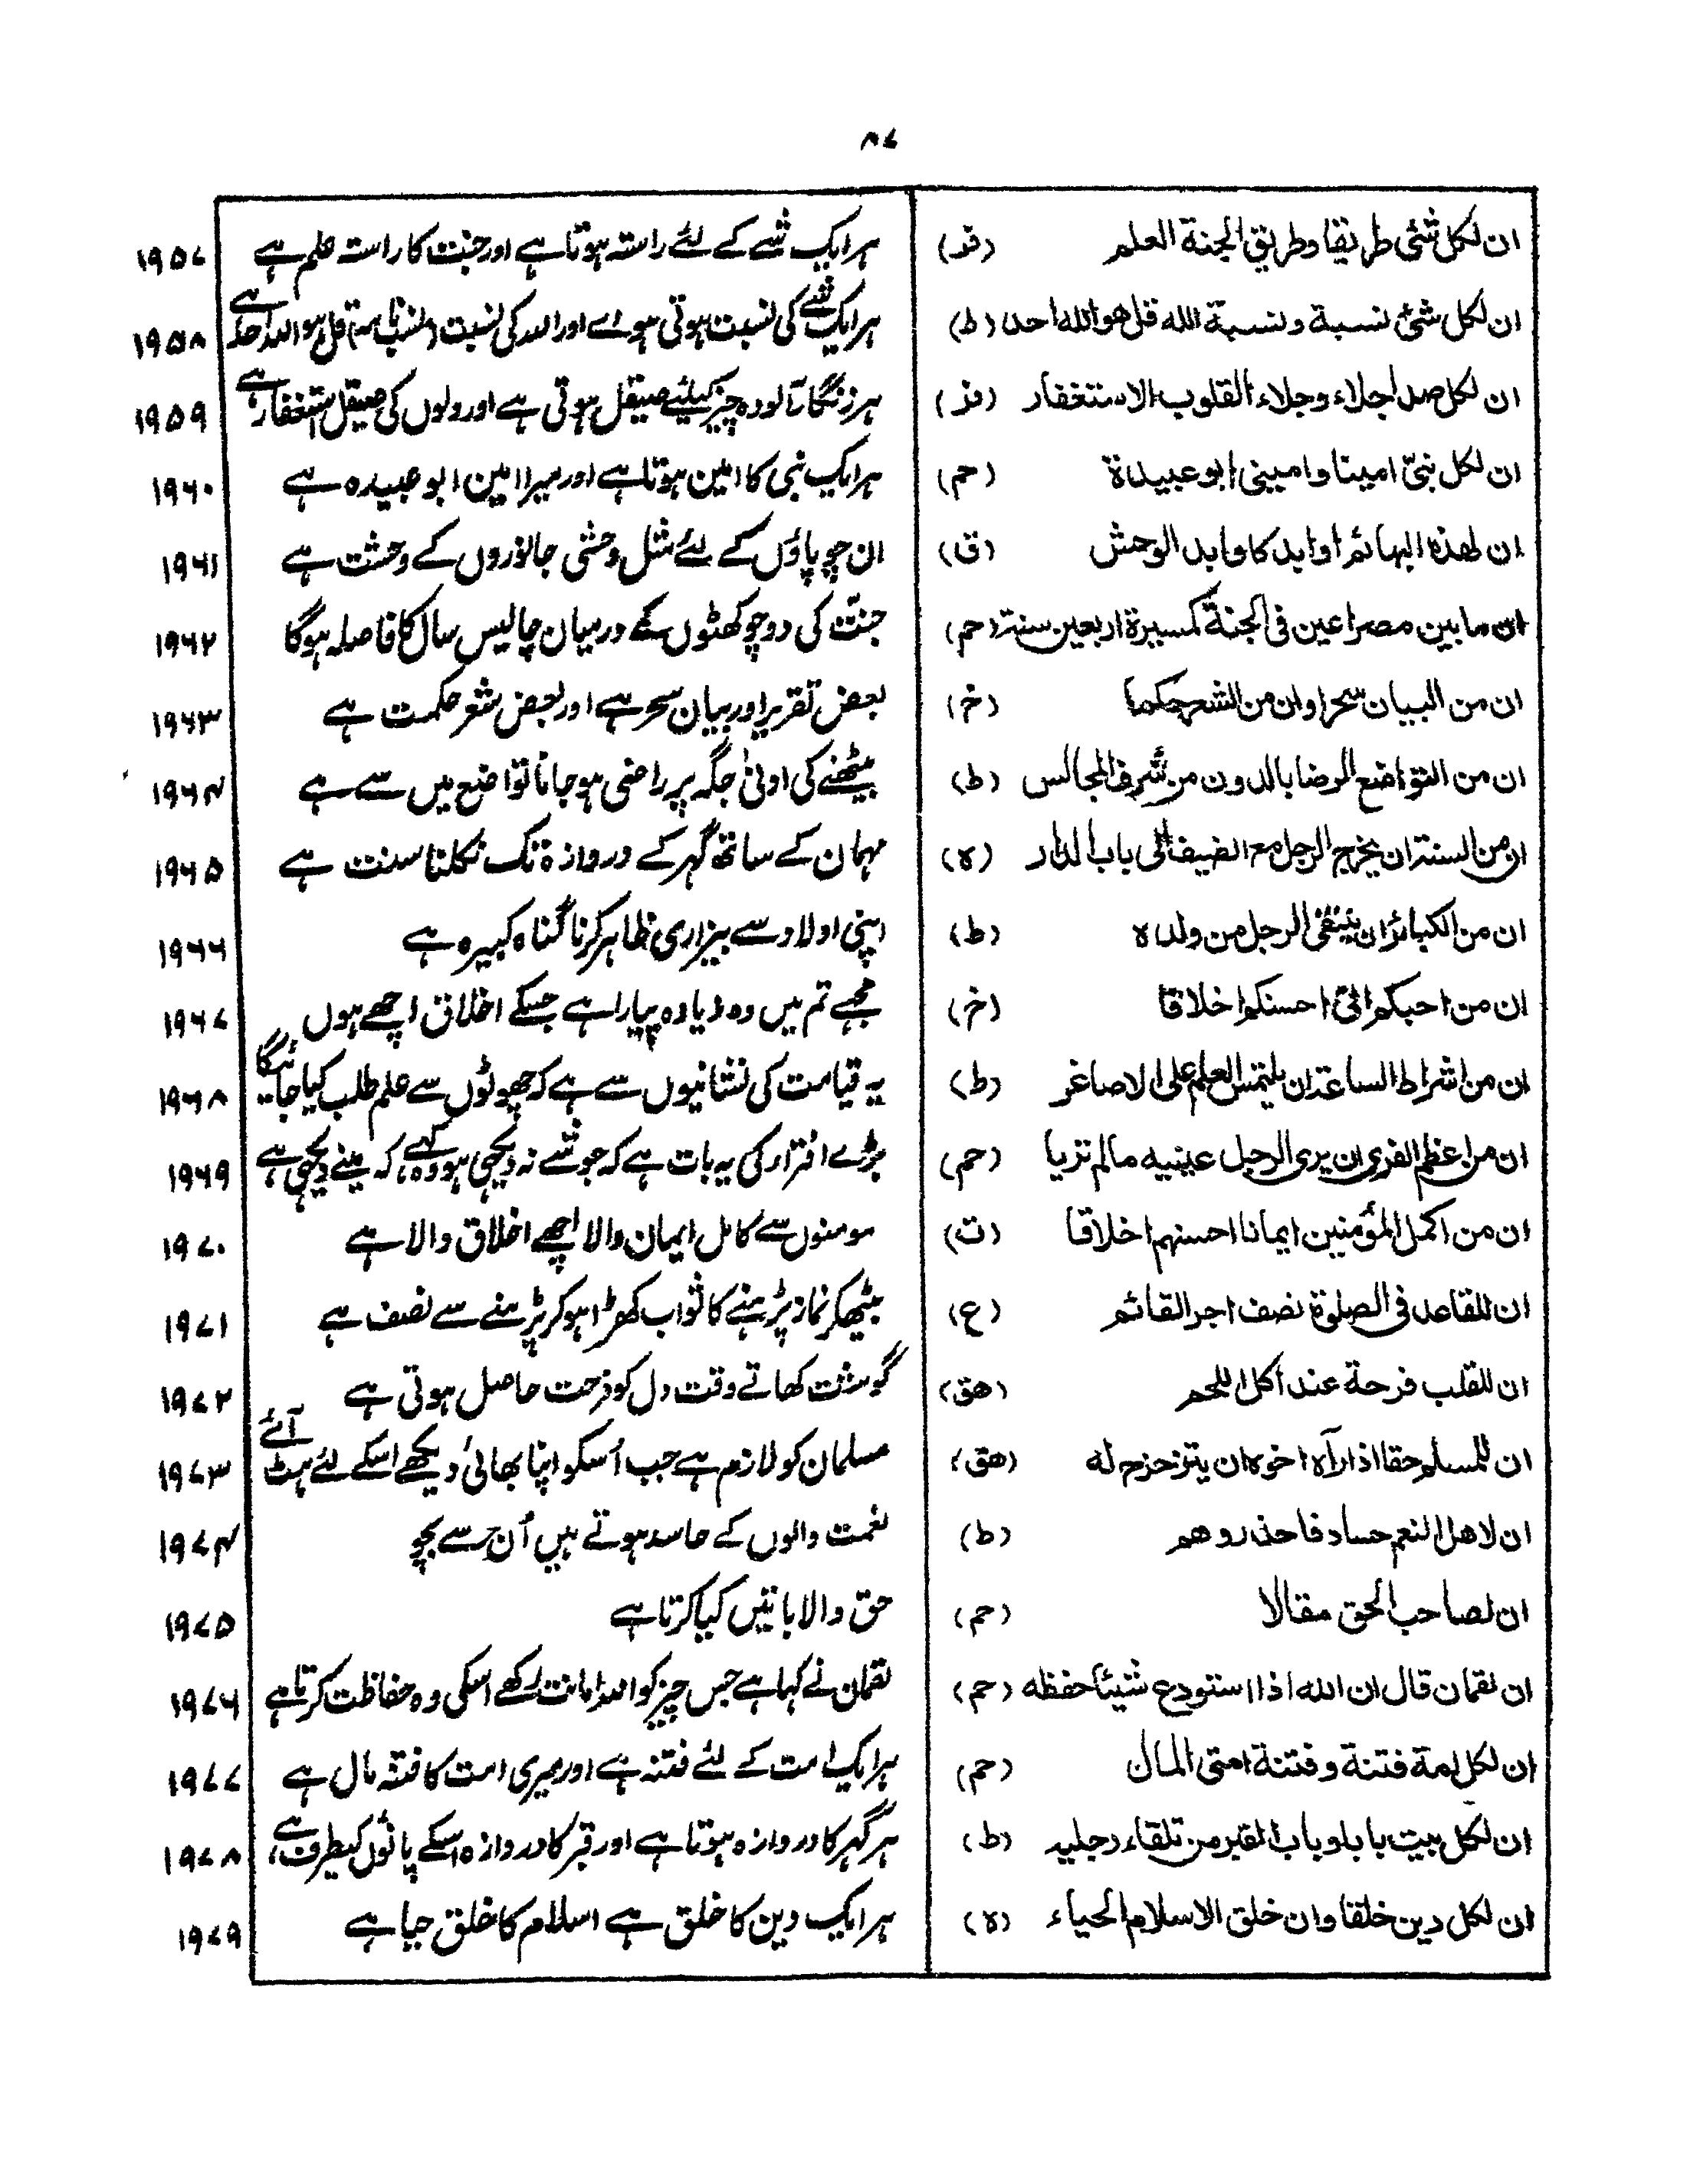 ۸۷
ان لکل شئی طریقا وطریق الجنة العلم (فر) ہر ایک شے کے لئے راستہ ہوتا ہے اور جنت کا راستہ علم ہے ۱۹۵۷
ان لکل شئ نسبة ونسبة الله قل هو الله احد (ط) ہر ایک شے کی نسبت ہوتی ہے اور اللہ کی نسبت قل ہو اللہ احد ہے ۱۹۵۸
ان لکل صدأ جلاء وجلاء القلوب الاستغفار (فر) ہر زنگار آلودہ چیز کیلئے صیقل ہوتی ہے اور دلوں کی صیقل استغفار ہے ۱۹۵۹
ان لکل نبیّ امینا وامینی ابو عبیدة (حم) ہر ایک نبی کا امین ہوتا ہے اور میرا امین ابو عبیدہ ہے ۱۹۶۰
ان لهذه البهائم اوابد کاوابد الوحش (ق) ان چوپاؤں کے لئے مثل وحشی جانوروں کے وحشت ہے ۱۹۶۱
ان ما بین مصراعین فی الجنة کمسیرة اربعین سنة (حم) جنّت کی دو چوکھٹوں کے درمیان چالیس سال کا فاصلہ ہوگا ۱۹۶۲
ان من البیان سحرا وان من الشعر حکما (خ) بعض تقریر اور بیان سحر ہے اور بعض شعر حکمت ہے ۱۹۶۳
ان من التواضع الرضا بالدون من شرف المجالس (ط) بیٹھنے کی ادنیٰ جگہ پر راضی ہو جانا تواضع میں سے ہے ۱۹۶۴
ان من السنة ان یخرج الرجل مع الضیف الی باب الدار (ہ) مہمان کے ساتھ گہر کے دروازہ تک نکلنا سنت ہے ۱۹۶۵
ان من الکبائر ان ینتفی الرجل من ولده (ط) اپنی اولاد سے بیزاری ظاہر کرنا گناہ کبیرہ ہے ۱۹۶۶
ان من احبکم الیّ احسنکم اخلاقا (خ) مجہے تم میں وہ زیادہ پیارا ہے جسکے اخلاق اچھے ہوں ۱۹۶۷
ان من اشراط الساعة ان یلتمس العلم علی الاصاغر (ط) یہ قیامت کی نشانیوں سے ہے کہ چھوٹوں سے علم طلب کیا جائیگا ۱۹۶۸
ان من اعظم الفری ان یری الرجل عینیه مالم تریا (حم) بڑے افترار کی یہ بات ہے کہ جو شے نہ دیکھی ہو وہ کہے کہ مینے دیکھی ہے ۱۹۶۹
ان من اکمل المؤمنین ایمانا احسنهم اخلاقا (ت) مومنوں سے کامل ایمان والا اچھے اخلاق والا ہے ۱۹۷۰
ان للقاعد فی الصلوة نصف اجر القائم (ع) بیٹھکر نماز پڑہنے کا ثواب کھڑا ہو کر پڑہنے سے نصف ہے ۱۹۷۱
ان للقلب فرحة عند أکل اللحم (هق) گوشت کھاتے وقت دل کو فرحت حاصل ہوتی ہے ۱۹۷۲
ان للمسلم حقا اذا رآه اخوه ان یتزحزح له (هق) مسلمان کو لازم ہے جب اُسکو اپنا بھائی دیکھے اسکے لئے ہٹ آئے ۱۹۷۳
ان لاهل النعم حسادا فاحذروهم (ط) نعمت والوں کے حاسد ہوتے ہیں اُن سے بچو ۱۹۷۴
ان لصاحب الحق مقالا (حم) حق والا باتیں کیا کرتا ہے ۱۹۷۵
ان لقمان قال ان الله اذا استودع شیئا حفظه (حم) لقمان نے کہا ہے جس چیز کو اللہ امانت رکھے اسکی وہ حفاظت کرتا ہے ۱۹۷۶
ان لکل امة فتنة وفتنة امتی المال (حم) ہر ایک امت کے لئے فتنہ ہے اور میری امت کا فتنہ مال ہے ۱۹۷۷
ان لکل بیت بابا وباب القبر من تلقاء رجلیه (ط) ہر گہر کا دروازہ ہوتا ہے اور قبر کا دروازہ اسکے پائوں کیطرف ہے ۱۹۷۸
ان لکل دین خلقا وان خلق الاسلام الحیاء (ہ) ہر ایک دین کا خلق ہے اسلام کا خلق حیا ہے ۱۹۷۹